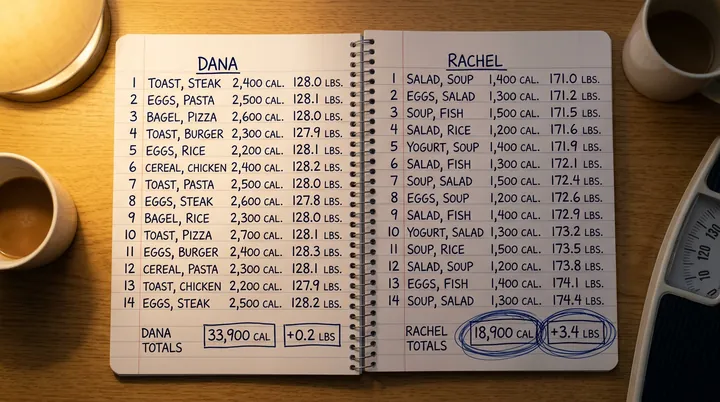 DANA
1 TOAST, STEAK 2,400 CAL. 128.0 LBS.
2 EGGS, PASTA 2,500 CAL. 128.1 LBS.
3 BAGEL, PIZZA 2,600 CAL. 128.0 LBS.
4 TOAST, BURGER 2,300 CAL. 127.9 LBS.
5 EGGS, RICE 2,200 CAL. 128.1 LBS.
6 CEREAL, CHICKEN 2,400 CAL. 128.2 LBS.
7 TOAST, PASTA 2,500 CAL. 128.0 LBS.
8 EGGS, STEAK 2,600 CAL. 127.8 LBS.
9 BAGEL, RICE 2,300 CAL. 128.0 LBS.
10 TOAST, PIZZA 2,700 CAL. 128.1 LBS.
11 EGGS, BURGER 2,400 CAL. 128.3 LBS.
12 CEREAL, PASTA 2,300 CAL. 128.1 LBS.
13 TOAST, CHICKEN 2,200 CAL. 127.9 LBS.
14 EGGS, STEAK 2,500 CAL. 128.2 LBS.
DANA TOTALS 33,900 CAL +0.2 LBS
RACHEL
1 SALAD, SOUP 1,400 CAL. 171.0 LBS.
2 EGGS, SALAD 1,300 CAL. 171.2 LBS.
3 SOUP, FISH 1,500 CAL. 171.5 LBS.
4 SALAD, RICE 1,200 CAL. 171.6 LBS.
5 YOGURT, SOUP 1,400 CAL. 171.9 LBS.
6 SALAD, FISH 1,300 CAL. 172.1 LBS.
7 SOUP, SALAD 1,500 CAL. 172.4 LBS.
8 EGGS, SOUP 1,200 CAL. 172.6 LBS.
9 SALAD, FISH 1,400 CAL. 172.9 LBS.
10 YOGURT, SALAD 1,300 CAL. 173.2 LBS.
11 SOUP, RICE 1,500 CAL. 173.5 LBS.
12 SALAD, SOUP 1,200 CAL. 173.8 LBS.
13 EGGS, FISH 1,400 CAL. 174.1 LBS.
14 SOUP, SALAD 1,300 CAL. 174.4 LBS.
RACHEL TOTALS 18,900 CAL +3.4 LBS
120
130
10